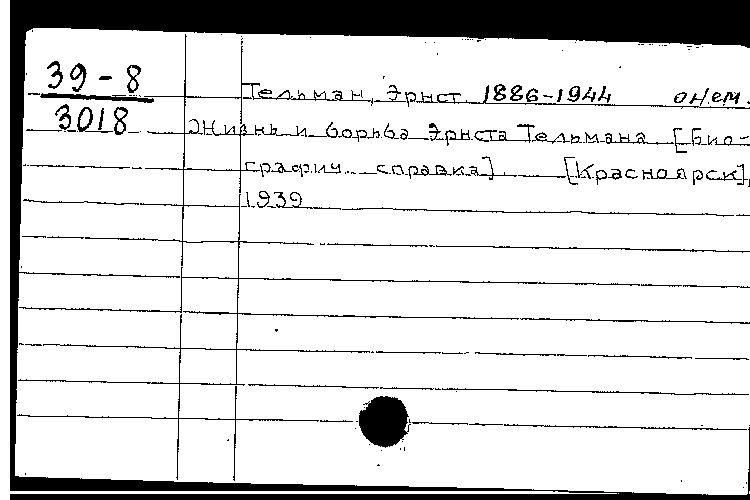 39-8
3018
Тельман, Эрнст 1886-1944 о нем.
Жизнь и борьба Эрнста Тельмана. [Био-
графич. справка] [Красноярск],
1939